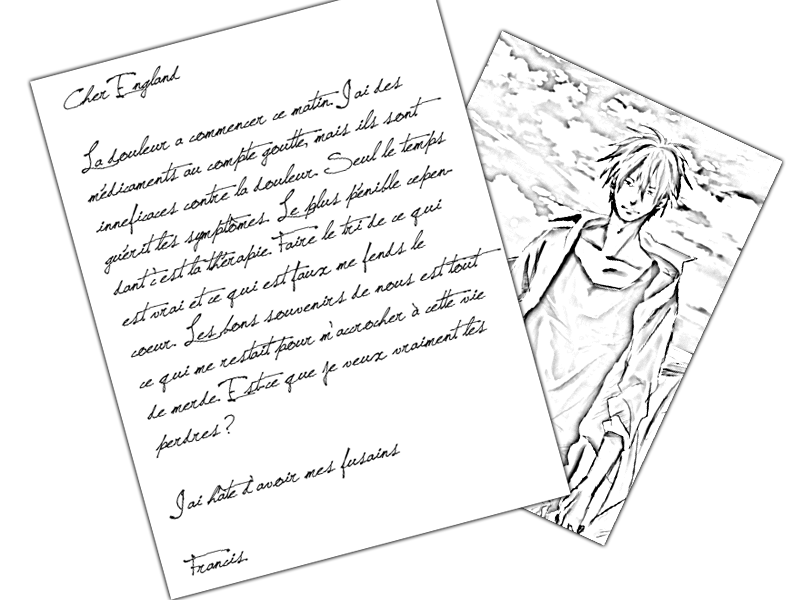 Cher England
La douleur a commencer ce matin. J'ai des
médicaments au compte goutte, mais ils sont
inneficaces contre la douleur. Seul le temps
guérit les symptômes. Le plus pénible cepen-
dant c'est la thérapie. Faire le tri de ce qui
est vrai et ce qui est faux me fends le
coeur. Les bons souvenirs de nous est tout
ce qui me restait pour m'accrocher à cette vie
de merde. Est-ce que je veux vraiment les
perdres?
J'ai hâte d'avoir mes fusains
Francis